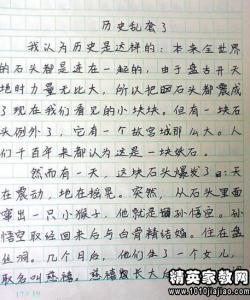 历史乱套了
我认为历史是这样的：本来全世界
的石头都是连在一起的，由于盘古开天
地时力量无比大，所以把四石头都震成
了现在我们看见的小块块。但有一块石
头例外了，它有一个故宫城那么大。人
们千百年来都认为这是一块妖石。
然而有一天，这块石头爆发了：天
在震动，地在摇晃。突然，从石头里面
窜出一只小猴子，他就是猢狲悟空。孙
悟空取经回来后与白骨精结婚。住在盘
丝洞。几个月后，他们生了一个女儿，
取名叫慈禧。慈禧长大后
精英家教网
www.1010jiajiao.com